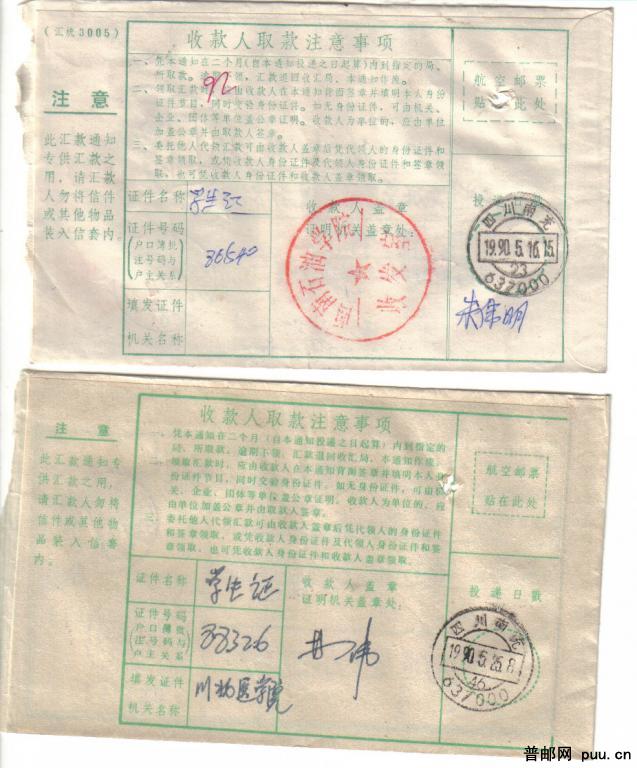 (汇统3005)
收款人取款注意事项
注意
此汇款通知
专供汇款之
用,请汇款
人勿将信件
或其他物品
装入信套内。
一、凭本通知在二个月(自本通知投递之日起算)内到指定的局、
所取款。逾期不领,汇款退回收汇局,本通知作废。
二、领取汇款时,应由收款人在本通知背面签章并填明本人身
份证件节目,同时交验身份证件。如无身份证件,可由机关、
企业、团体等单位盖公章证明。收款人为单位的,应由单位
加盖公章并由取款人签章。
三、委托他人代领汇款可由收款人盖章后凭代领人的身份证件和
签章领取,或凭收款人身份证件及代领人身份证件和签章领
取,也可凭收款人身份证件和收款人签章领取。
92
航空邮票
贴在此处
证件名称
学生证
证件号码
(户口簿批
注号码与
户主关系)
86540
填发证件
机关名称
收款人盖章
证明机关盖章处:
西南石油学院
收发室
投递
四川南充
1990.5.16.15
23
637000
收款人取款注意事项
注意
此汇款通知专
供汇款之用,
请汇款人勿将
信件或其他物
品装入信套
内。
一、凭本通知在二个月(自本通知投递之日起算)内到指定的
局、所取款,逾期不领,汇款退回收汇局,本通知作废。
二、领取汇款时,应由收款人在本通知背面签章并填明本人身
份证件节目,同时交验身份证件,如无身份证件,可由机
关、企业、团体等单位盖公章证明,收款人为单位的,应
由单位加盖公章并由取款人签章。
三、委托他人代领汇款可由收款人盖章后凭代领人的身份证件
和签章领取,或凭收款人身份证件及代领人身份证件和签
章领取,也可凭收款人身份证件和收款人盖章领取。
航空邮票
贴在此处
证件名称
学生证
证件号码
(户口簿批
注号码与
户主关系)
883326
填发证件
机关名称
川北医学院
收款人盖章
证明机关盖章处:
投递日戳
四川南充
1990.5.25.8
46
637000
普邮网 puu.cn